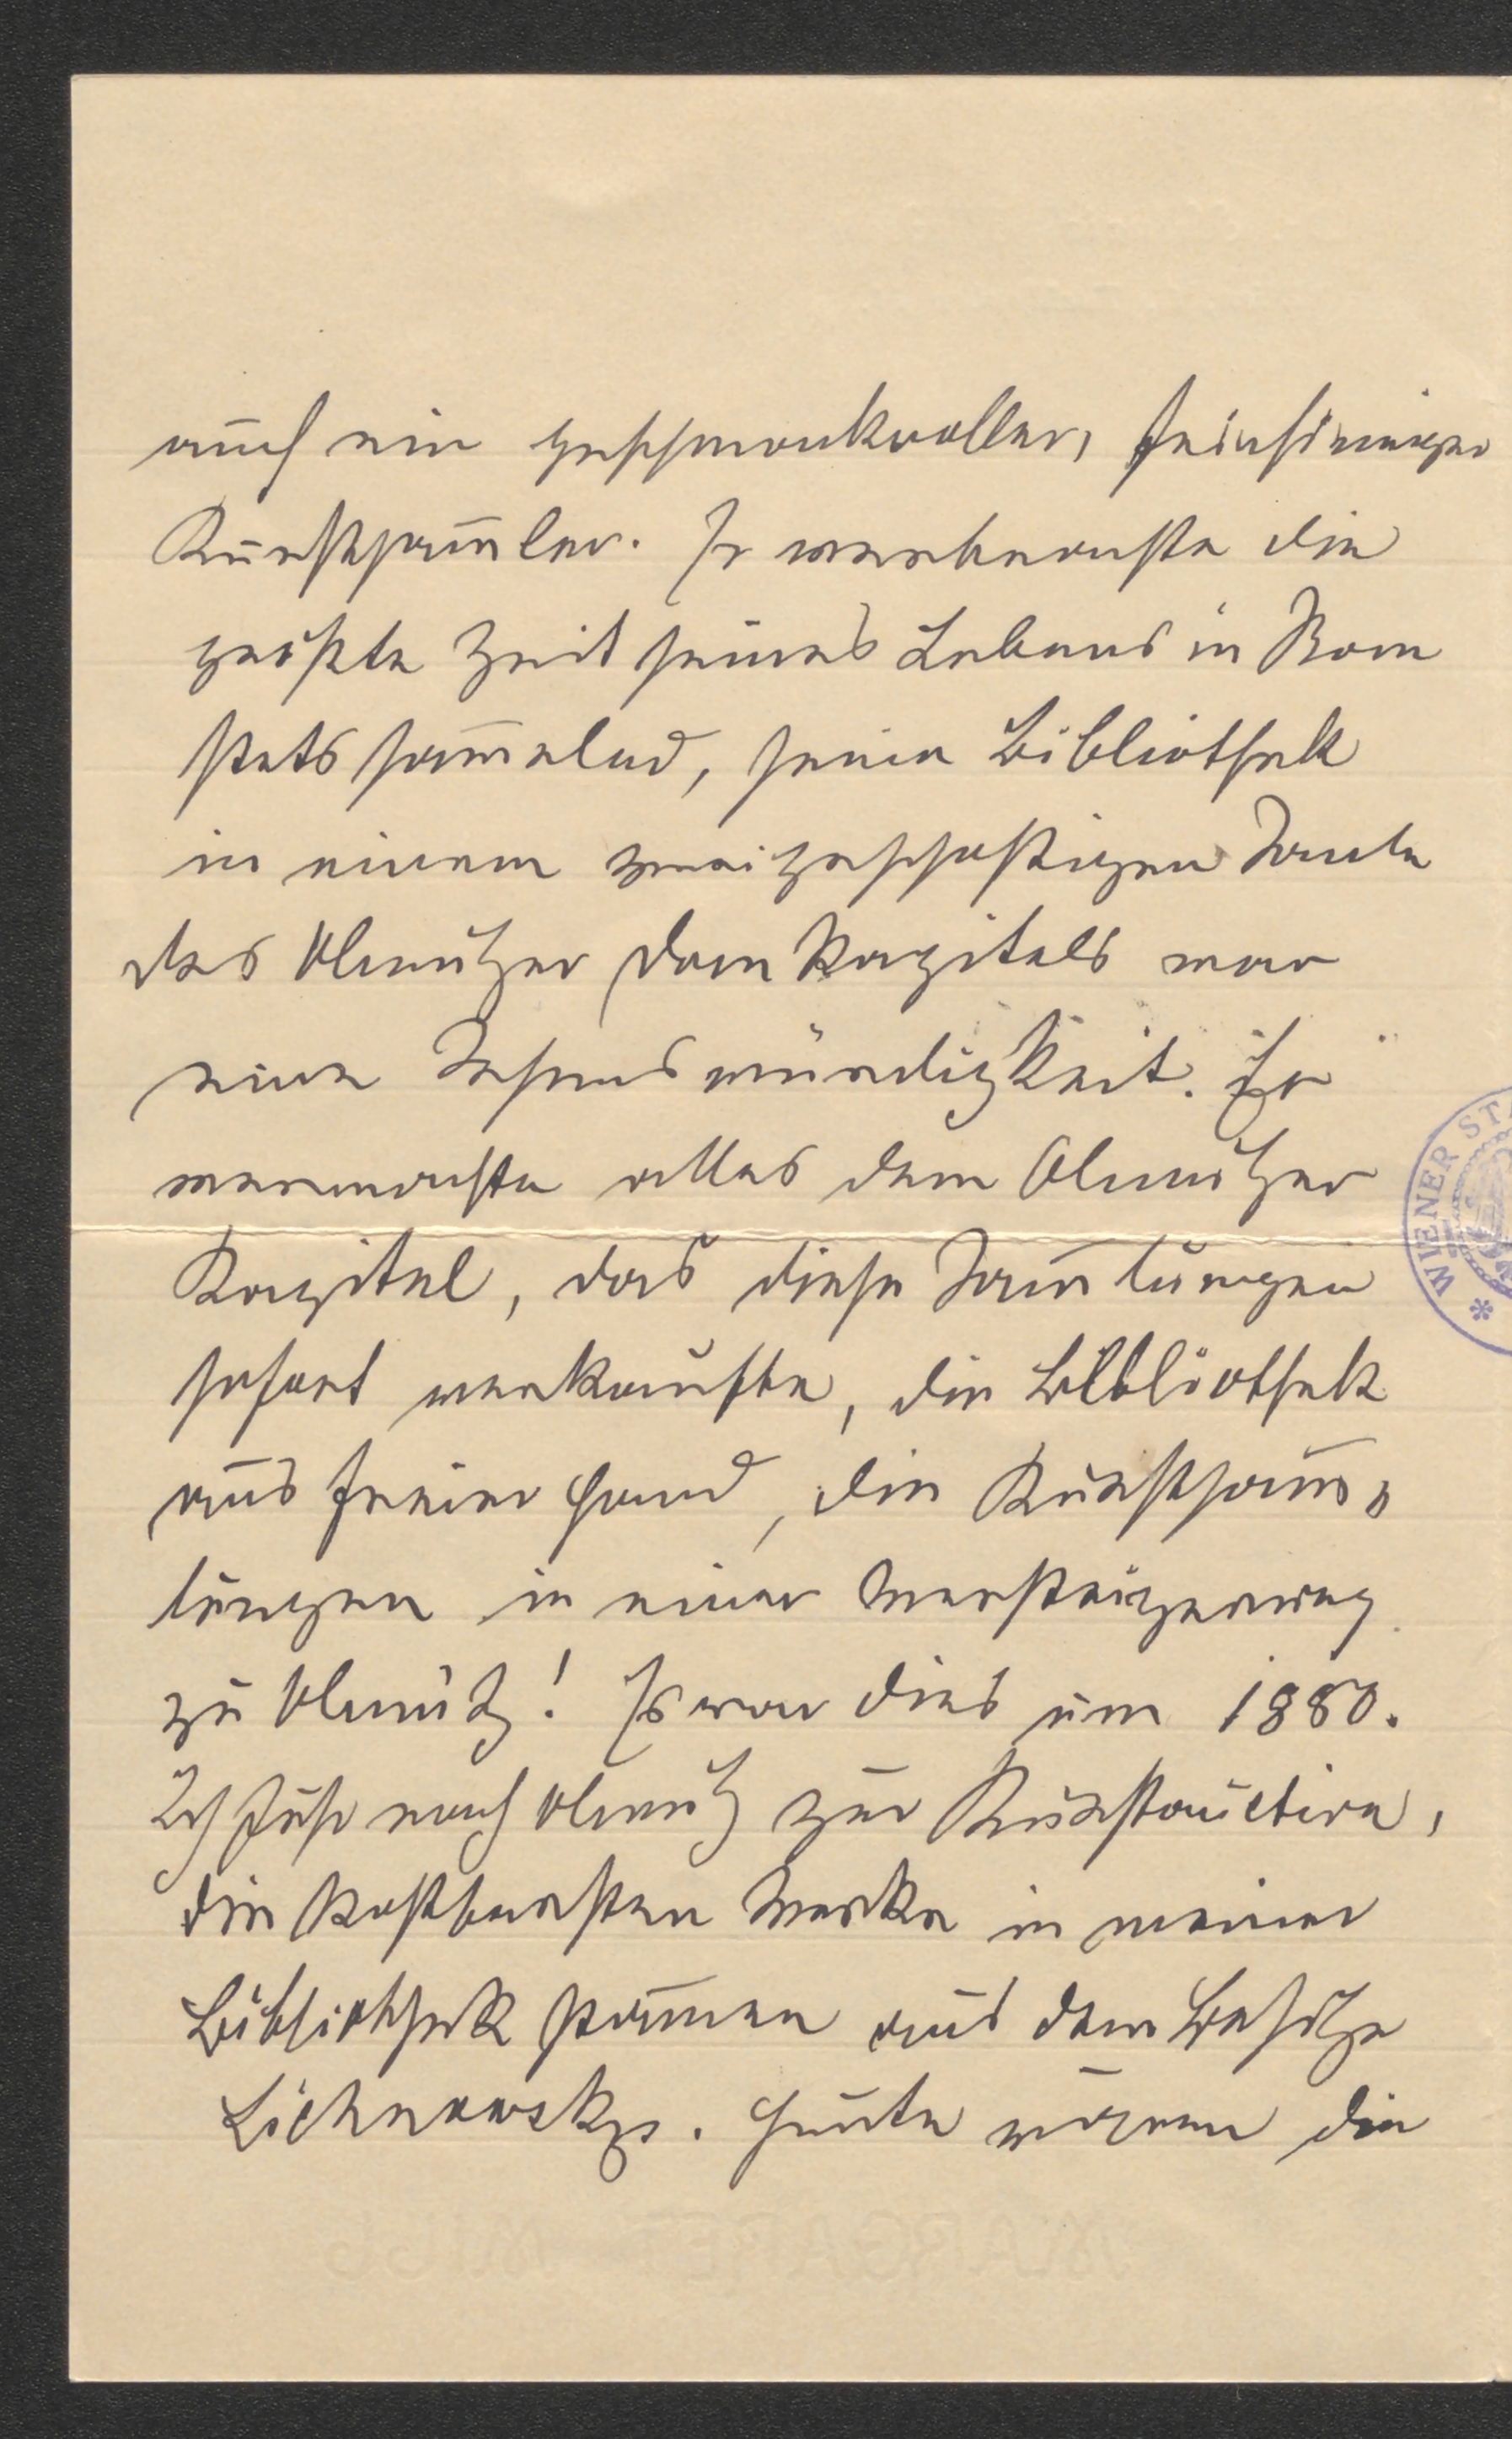 auch ein geschmackvoller, feinsinniger
Kunstsam̅ler. Er verbrachte die
größte Zeit seines Lebens in Rom
stets sam̅elnd, seine Bibliothek
in einem zweigeschossigen Saale
des Olmützer Domkapitels war
eine Sehenswürdigkeit. Er
vermachte alles dem Olmützer
Kapitel, das diese Sam̅lungen
sofort verkaufte, die Bibliothek
aus freier Hand, die Kunstsam̅-
lungen in einer Versteigerung
zu Olmütz! Es war dies um 1880.
Ich fuhr nach Olmütz zur Kunstauction,
die kostbarsten Werke in meiner
Bibliothek stam̅en aus dem Besitze
Lichnowskys. Heute wären die
WIENER ST